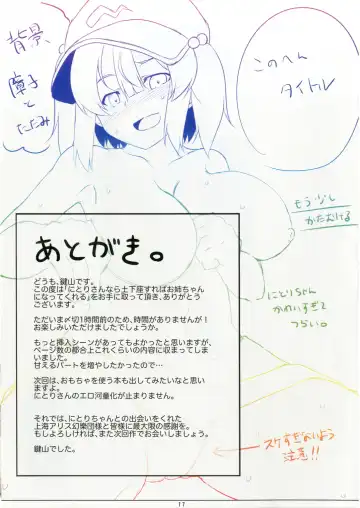 背景
障子と
たたみ
このへん
タイトル
もう少し
かたむける
にとりちゃん
かわいすぎて
つらい。
あとがき。
どうも、鍵山です。
この度は「にとりさんなら土下座すればお姉ちゃん
になってくれる」をお手に取って頂き、ありがとう
ございます。
ただいま〆切1時間前のため、時間がありませんが!
お楽しみいただけましたでしょうか。
もっと挿入シーンがあってもよかったと思いますが、
ページ数の都合上これくらいの内容に収まってしまい
ました。
甘えるパートを増やしたかったので…
次回は、おもちゃを使う本も出してみたいなと思い
ますよ。
にとりさんのエロ河童化が止まりません。
それでは、にとりちゃんとの出会いをくれた
上海アリス幻樂団様と皆様に最大限の感謝を。
もしよろしければ、また次回作でお会いしましょう。
鍵山でした。
スケすぎないよう
注意!!
17